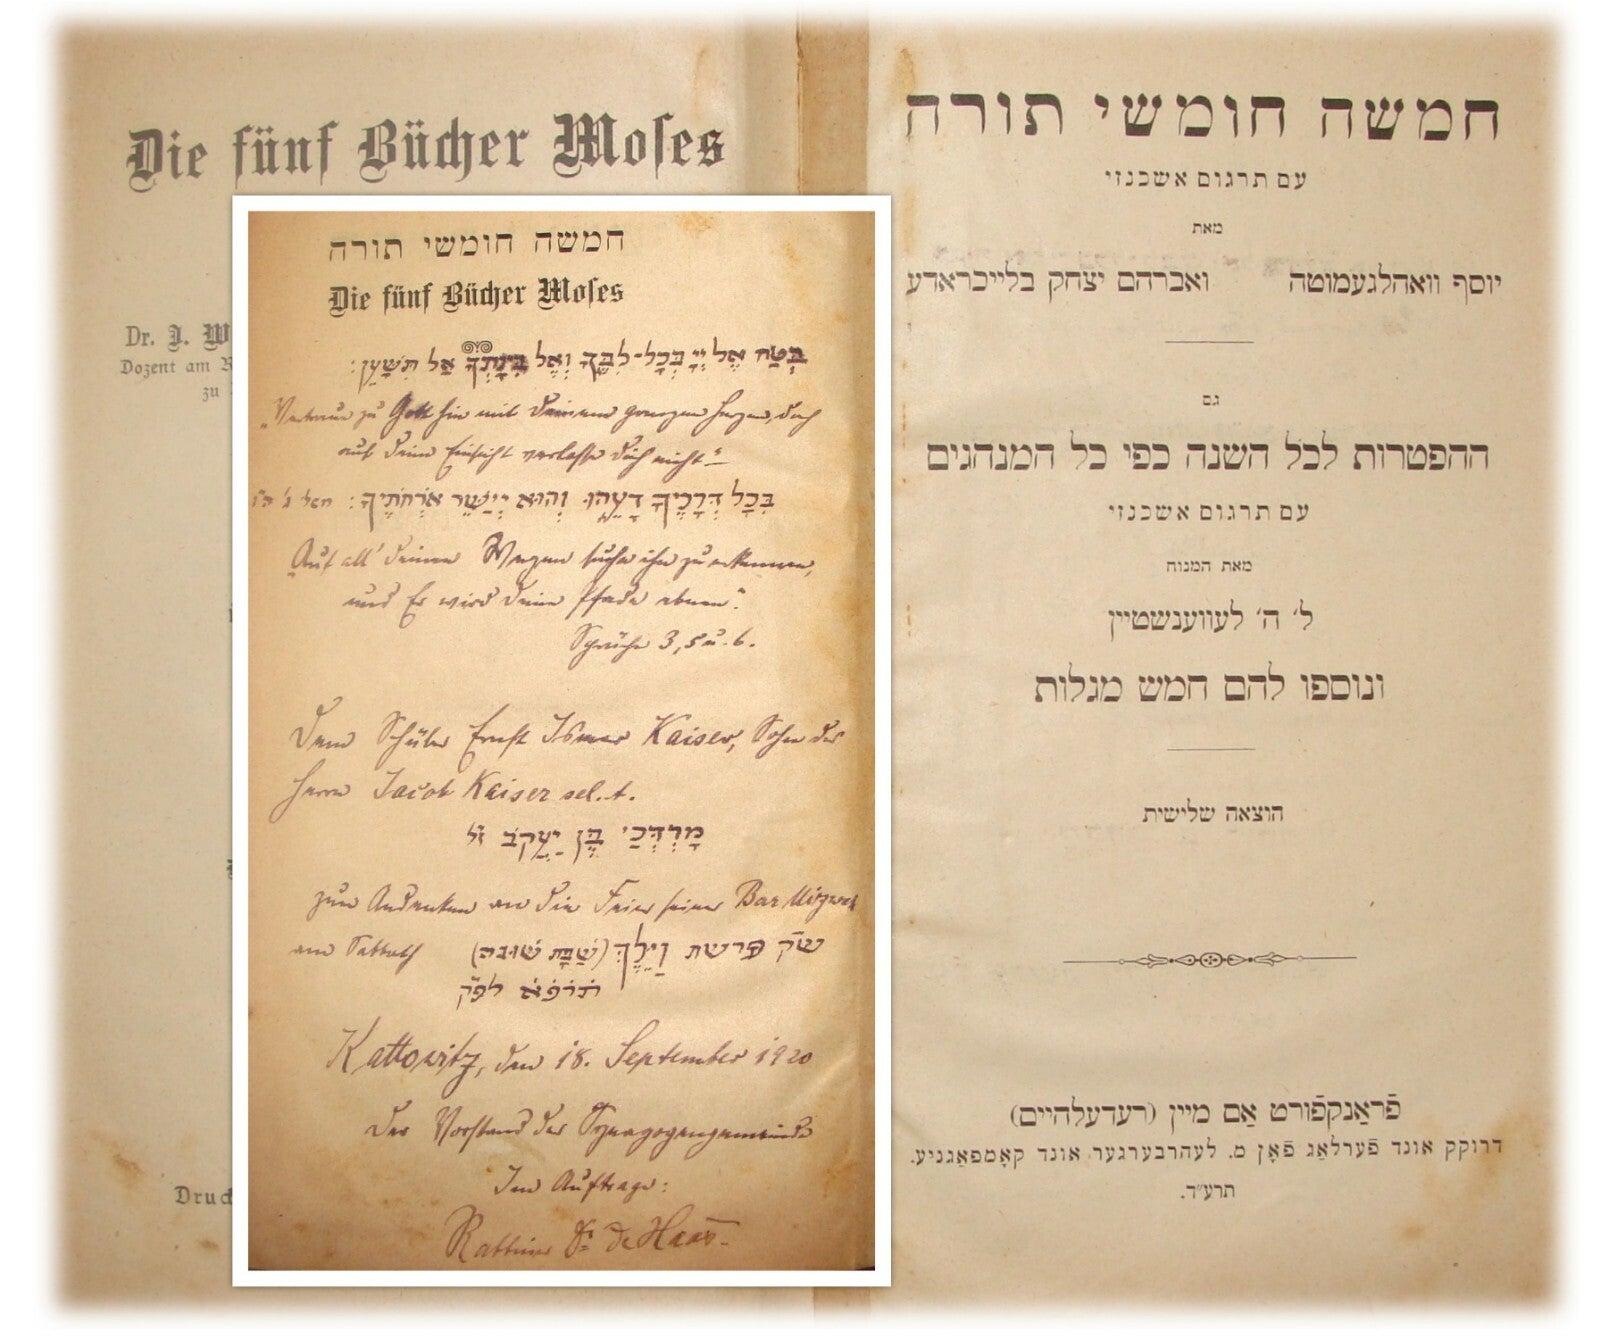 Die fünf Bücher Moses
Dr. J. W
Dozent am R
zu
Druc
חמשה חומשי תורה
Die fünf Bücher Moses
בְּטַח אֶל יְיָ בְּכָל־לִבֶּךָ וְאֶל בִּינָתְךָ אַל תִּשָּׁעֵן:
„Vertraue zu Gott hin mit deinem ganzen Herzen, doch
auf deine Einsicht verlasse dich nicht“ –
בְּכָל דְּרָכֶיךָ דָעֵהוּ וְהוּא יְיַשֵּׁר אֹרְחֹתֶיךָ: משלי ג׳ ה׳ו
„Auf all' deinen Wegen suche ihn zu erkennen,
und Er wird deine Pfade ebnen“.
Sprüche 3, 5 u. 6.
Dem Schüler Ernst Ismar Kaiser, Sohn des
Herrn Jacob Kaiser sel. A.
מָרְדְּכַי בֶּן יַעֲקֹב ז״ל
zum Andenken an die Feier seiner Bar Mizwah
am Sabbath ש״ק פרשת וַיֵּלֶךְ (שַׁבַּת שׁוּבָה)
תרפ״א לפ״ק
Kattowitz, den 18. September 1920
Der Vorstand der Synagogengemeinde
Im Auftrage:
Rabbiner Dr. de Haas.
חמשה חומשי תורה
עם תרגום אשכנזי
מאת
יוסף וואהלגעמוטה ואברהם יצחק בלייכראדע
גם
ההפטרות לכל השנה כפי כל המנהגים
עם תרגום אשכנזי
מאת המנוח
ל׳ ה׳ לעווענשטיין
ונוספו להם חמש מגלות
הוצאה שלישית
פֿראַנקפֿורט אַם מיין (רעדעלהיים)
דרוקק אונד פֿערלאַג פֿאָן מ. לעהרבערגער אונד קאָמפּאַגניע.
תרע״ד.